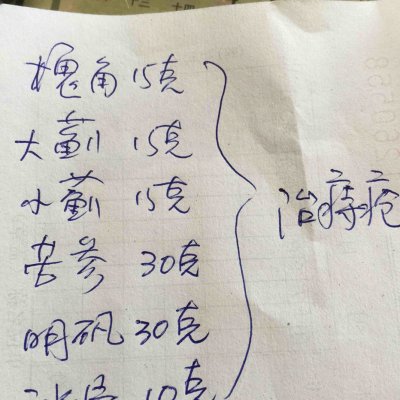 槐角 15克
大蓟 15克
小蓟 15克
苦参 30克
明矾 30克
10克
治痔疮